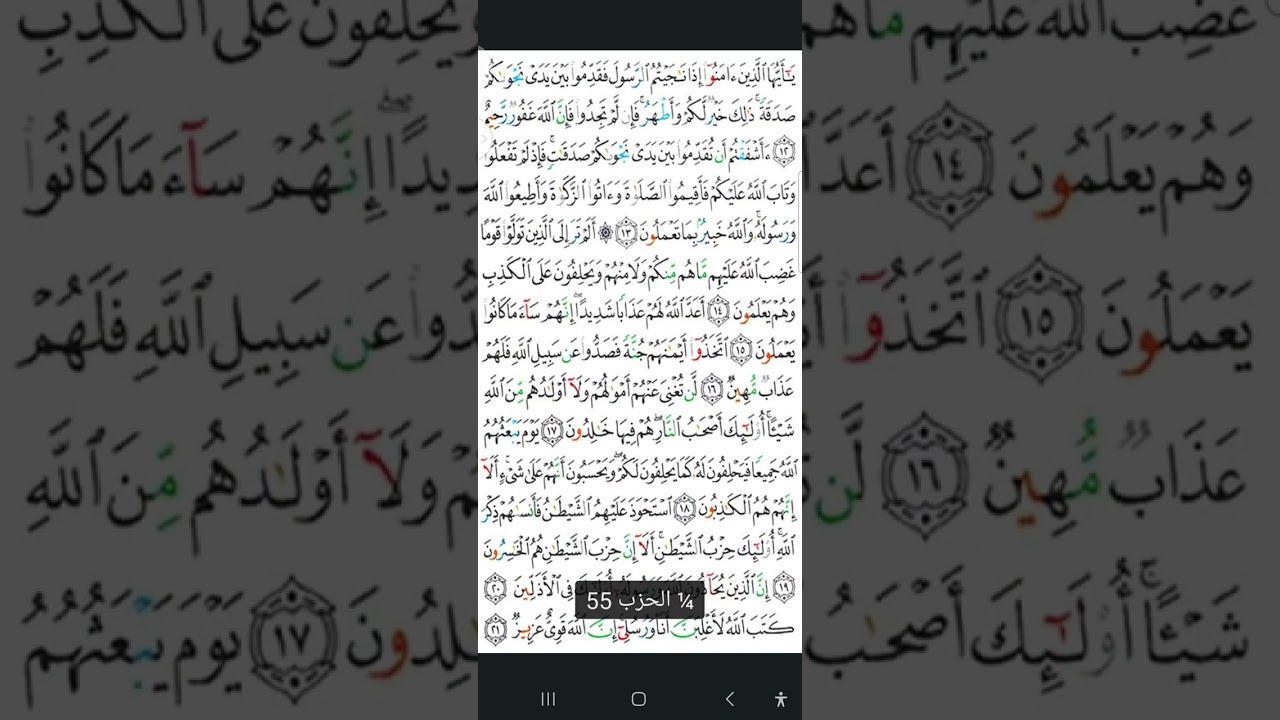 يَـٰٓأَيُّهَا ٱلَّذِينَ ءَامَنُوٓا۟ إِذَا نَـٰجَيْتُمُ ٱلرَّسُولَ فَقَدِّمُوا۟ بَيْنَ يَدَىْ نَجْوَىٰكُمْ
صَدَقَةً ۚ ذَٰلِكَ خَيْرٌ لَّكُمْ وَأَطْهَرُ ۚ فَإِن لَّمْ تَجِدُوا۟ فَإِنَّ ٱللَّهَ غَفُورٌ رَّحِيمٌ
١٢ ءَأَشْفَقْتُمْ أَن تُقَدِّمُوا۟ بَيْنَ يَدَىْ نَجْوَىٰكُمْ صَدَقَـٰتٍ ۚ فَإِذْ لَمْ تَفْعَلُوا۟
وَتَابَ ٱللَّهُ عَلَيْكُمْ فَأَقِيمُوا۟ ٱلصَّلَوٰةَ وَءَاتُوا۟ ٱلزَّكَوٰةَ وَأَطِيعُوا۟ ٱللَّهَ
وَرَسُولَهُۥ ۚ وَٱللَّهُ خَبِيرٌۢ بِمَا تَعْمَلُونَ ١٣ ۞ أَلَمْ تَرَ إِلَى ٱلَّذِينَ تَوَلَّوْا۟ قَوْمًا
غَضِبَ ٱللَّهُ عَلَيْهِم مَّا هُم مِّنكُمْ وَلَا مِنْهُمْ وَيَحْلِفُونَ عَلَى ٱلْكَذِبِ
وَهُمْ يَعْلَمُونَ ١٤ أَعَدَّ ٱللَّهُ لَهُمْ عَذَابًا شَدِيدًا ۖ إِنَّهُمْ سَآءَ مَا كَانُوا۟
يَعْمَلُونَ ١٥ ٱتَّخَذُوٓا۟ أَيْمَـٰنَهُمْ جُنَّةً فَصَدُّوا۟ عَن سَبِيلِ ٱللَّهِ فَلَهُمْ
عَذَابٌ مُّهِينٌ ١٦ لَّن تُغْنِىَ عَنْهُمْ أَمْوَٰلُهُمْ وَلَآ أَوْلَـٰدُهُم مِّنَ ٱللَّهِ
شَيْـًٔا ۚ أُو۟لَـٰٓئِكَ أَصْحَـٰبُ ٱلنَّارِ ۖ هُمْ فِيهَا خَـٰلِدُونَ ١٧ يَوْمَ يَبْعَثُهُمُ
ٱللَّهُ جَمِيعًا فَيَحْلِفُونَ لَهُۥ كَمَا يَحْلِفُونَ لَكُمْ ۖ وَيَحْسَبُونَ أَنَّهُمْ عَلَىٰ شَىْءٍ ۚ أَلَآ
إِنَّهُمْ هُمُ ٱلْكَـٰذِبُونَ ١٨ ٱسْتَحْوَذَ عَلَيْهِمُ ٱلشَّيْطَـٰنُ فَأَنسَىٰهُمْ ذِكْرَ
ٱللَّهِ ۚ أُو۟لَـٰٓئِكَ حِزْبُ ٱلشَّيْطَـٰنِ ۚ أَلَآ إِنَّ حِزْبَ ٱلشَّيْطَـٰنِ هُمُ ٱلْخَـٰسِرُونَ
١٩ إِنَّ ٱلَّذِينَ يُحَآدُّونَ فِى ٱلْأَذَلِّينَ ٢٠
¼ الحزب 55
كَتَبَ ٱللَّهُ لَأَغْلِبَنَّ أَنَا۠ وَرُسُلِىٓ ۚ إِنَّ ٱللَّهَ قَوِىٌّ عَزِيزٌ ٢١